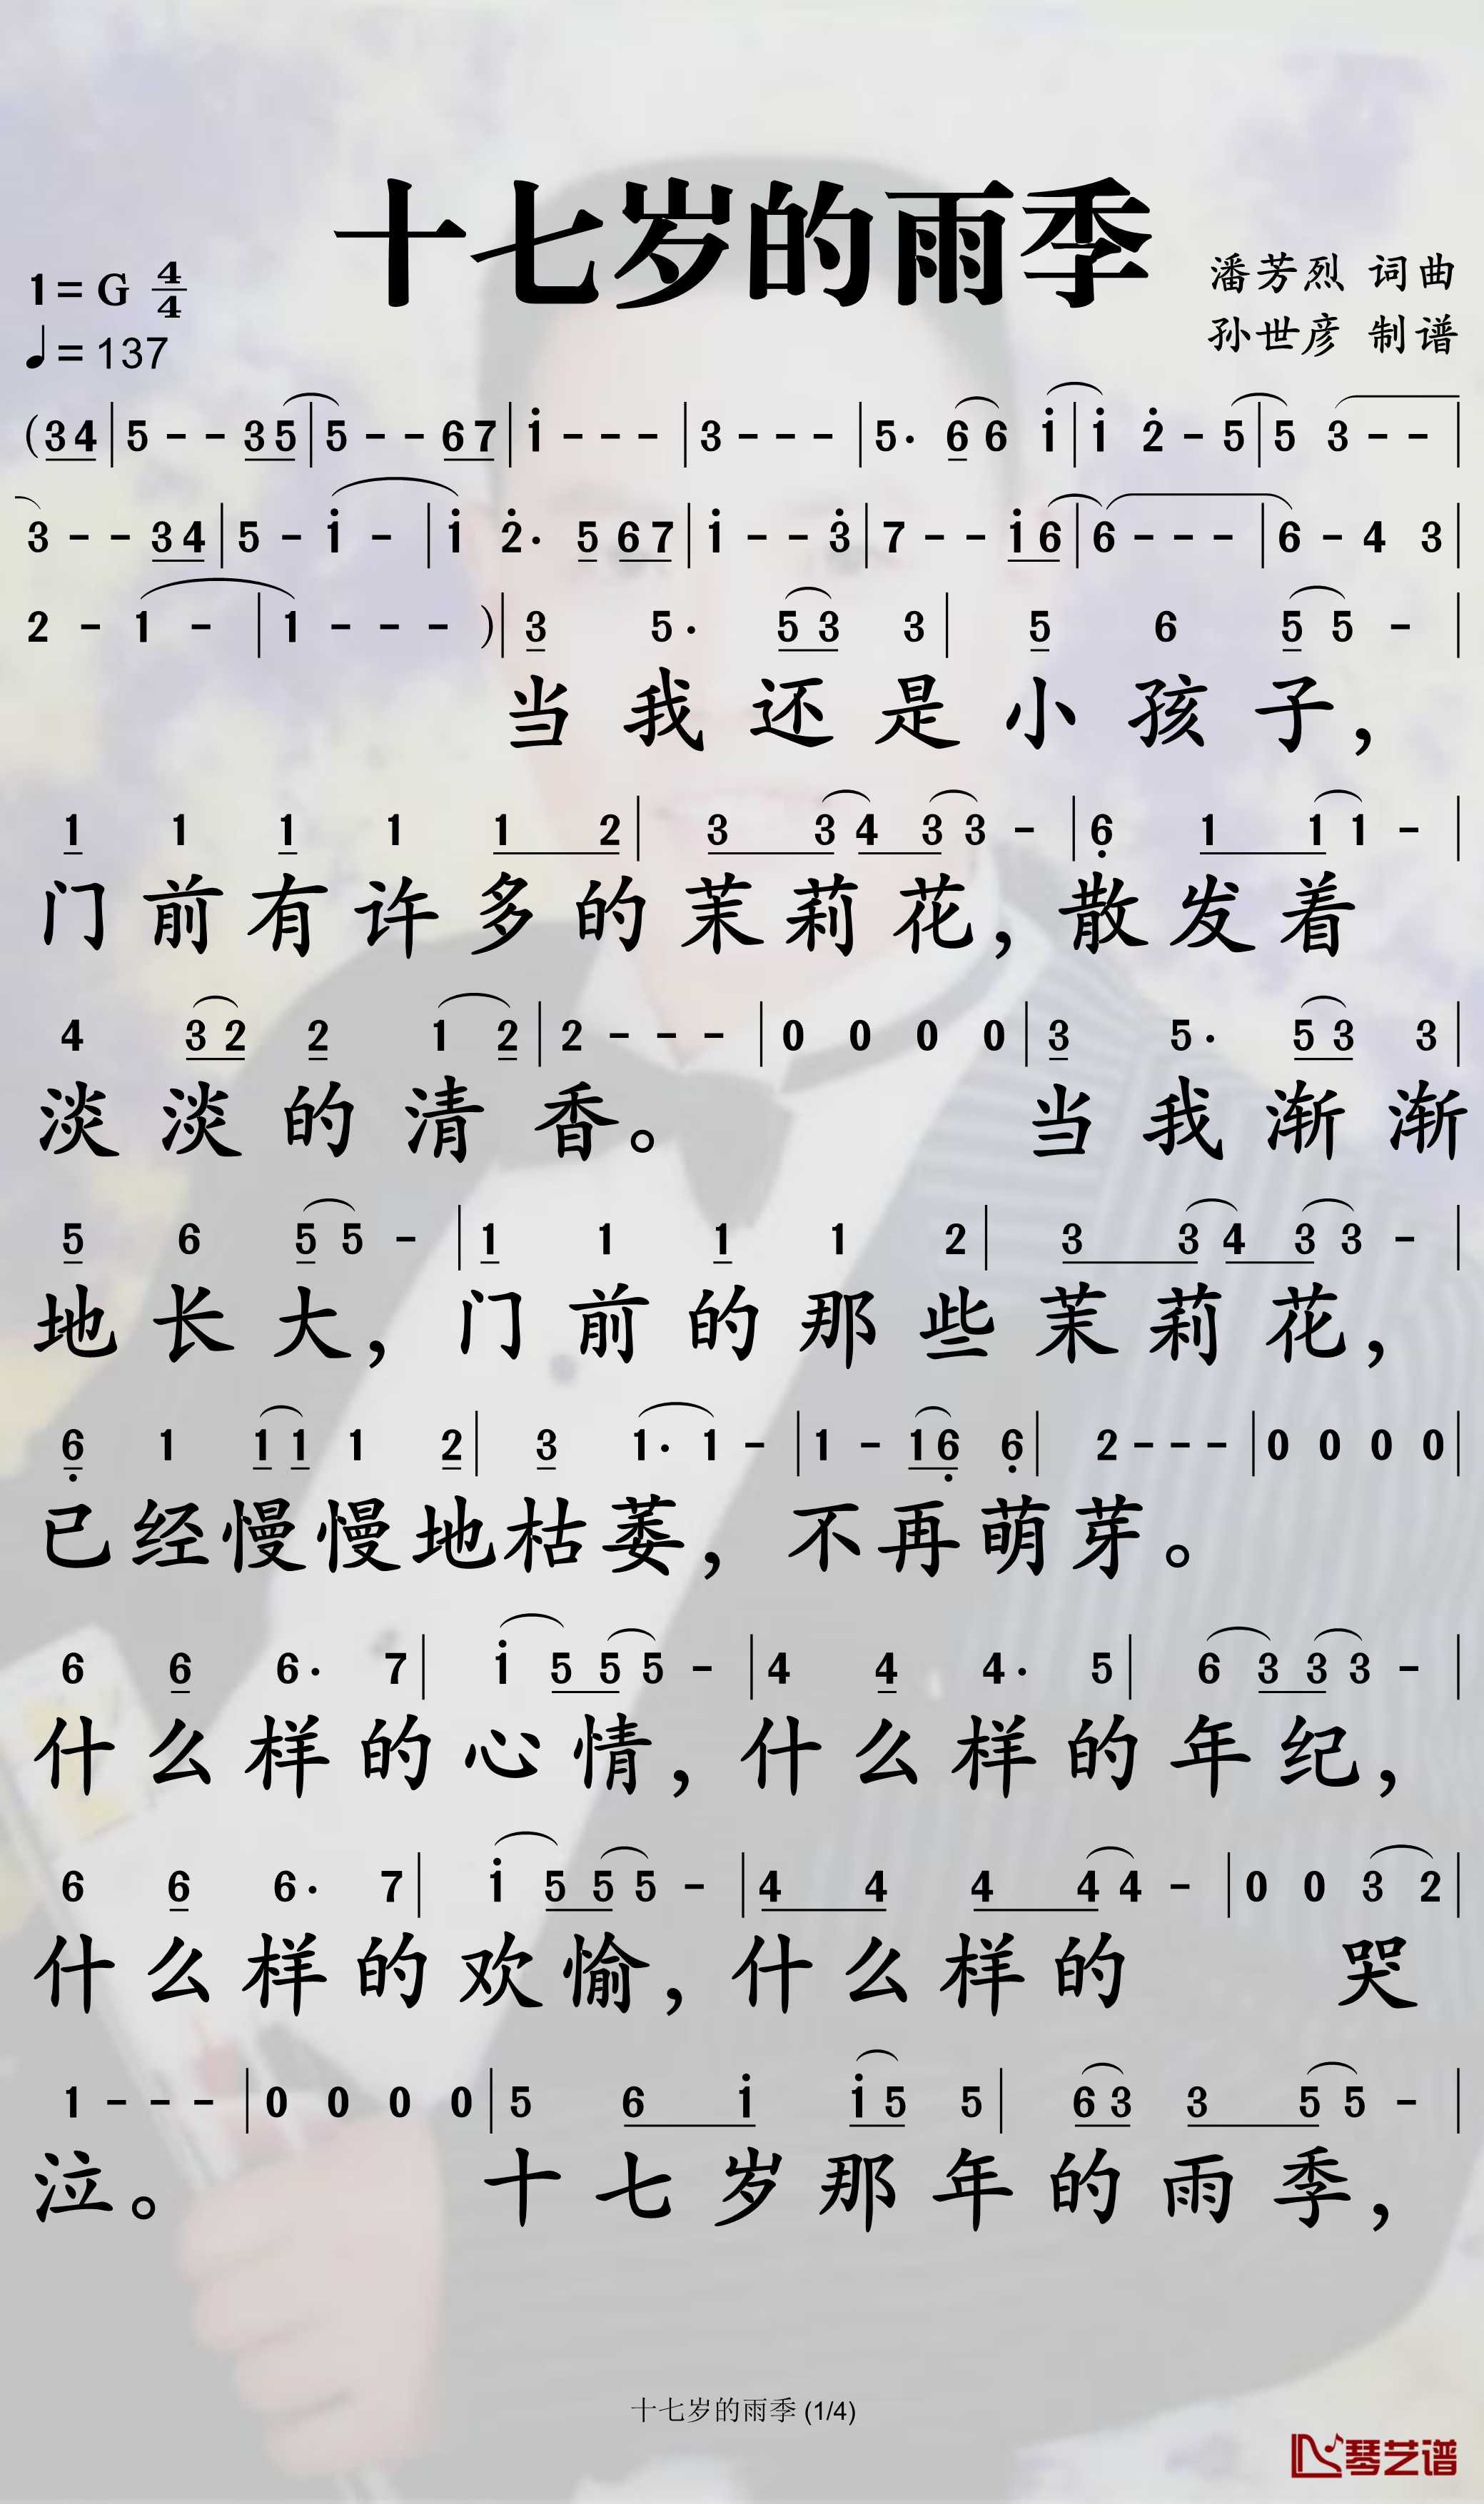 十七岁的雨季
1=G 4/4
潘芳烈 词曲
♩=137
孙世彦 制谱
(34|5--35|5--67|i---|3---|5·66i|i2-5|53--|
3--34|5-i-|i2·567|i--3|7--i6|6---|6-43|
2-1-|1---)|35·533|5655-|
当我还是小孩子，
111112|33433-|6111-|
门前有许多的茉莉花，散发着
432212|2---|0000|35·533|
淡淡的清香。当我渐渐
5655-|11112|33433-|
地长大，门前的那些茉莉花，
611112|31·1-|1-166|2---|0000|
已经慢慢地枯萎，不再萌芽。
666·7|i555-|444·5|6333-|
什么样的心情，什么样的年纪，
666·7|i555-|44444-|0032|
什么样的欢愉，什么样的 哭
1---|0000|56ii55|63355-|
泣。 十七岁那年的雨季，
十七岁的雨季 (1/4)
琴艺谱